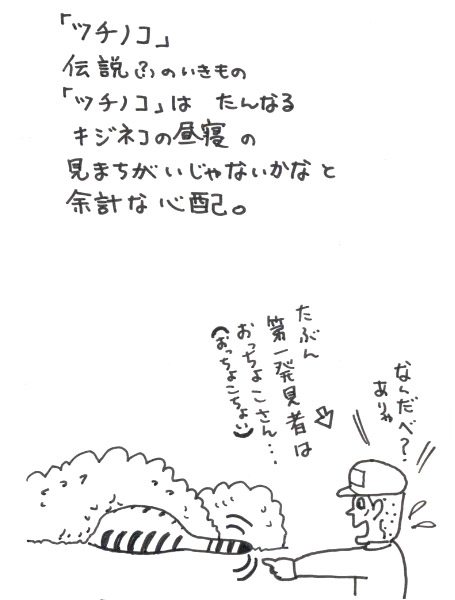 「ツチノコ」
伝説ふのいきもの
「ツチノコ」は たんなる
キジネコの昼寝の
見まちがいじゃないかなと
余計な心配。
たぶん
第一発見者は
おっちょこさん…
(おっちょこちょい)
なんだべ?
ありゃ